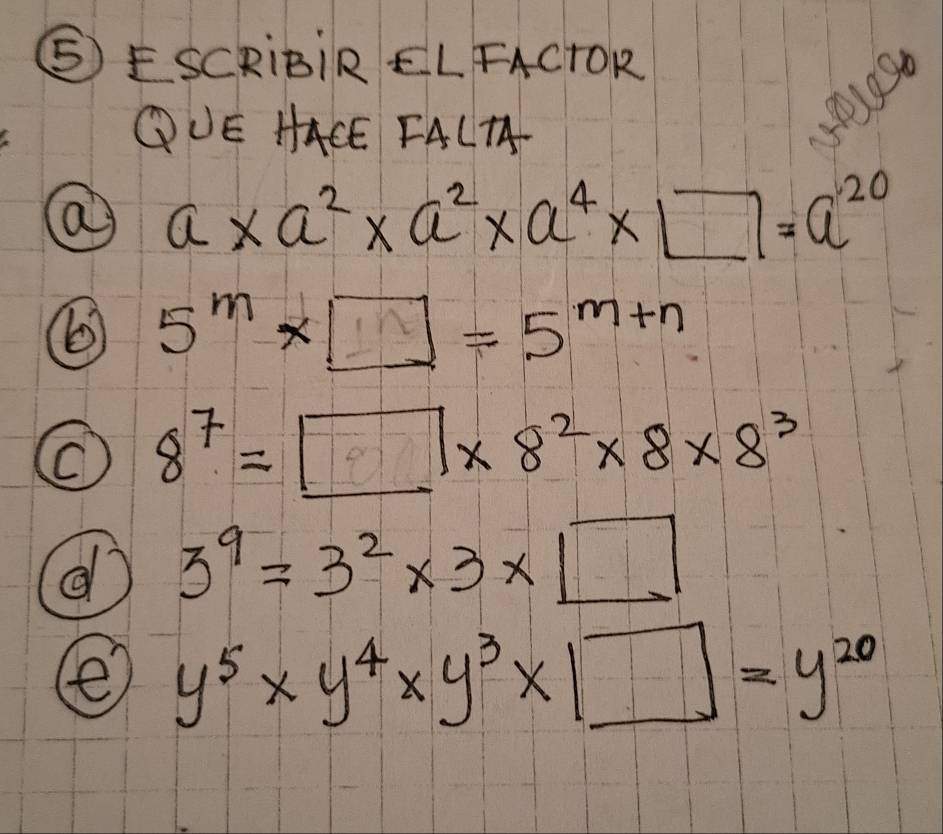 ⑤ ESCRIBIR EL FACTOR
QUE HACE FALTA
ⓐ a × a² × a² × a⁴ × □ = a²⁰
ⓑ 5ᵐ × □ = 5ᵐ⁺ⁿ
ⓒ 8⁷ = □ × 8² × 8 × 8³
ⓓ 3⁹ = 3² × 3 × □
ⓔ y⁵ × y⁴ × y³ × □ = y²⁰